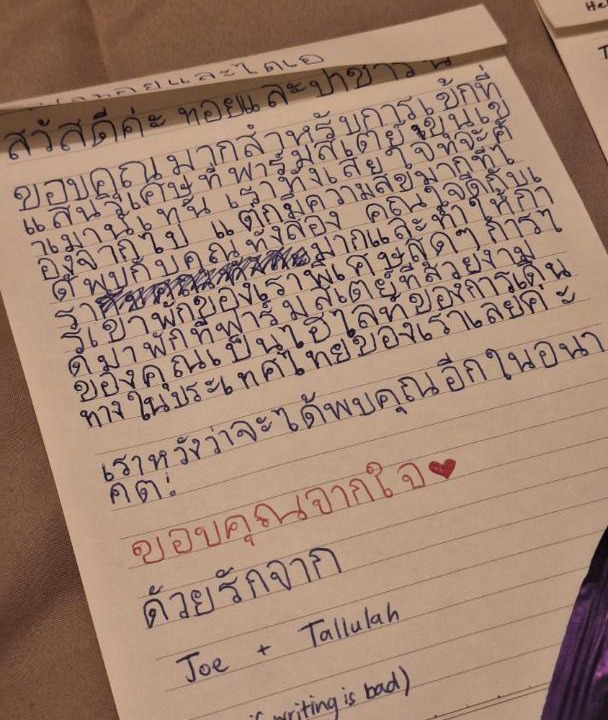 สวัสดีค่ะ ทอยและ
ขอบคุณมากสำหรับการ
แสนวิเศษที่ฟาร์มสเตย์ ขุนเข
เราทั้งเสียใจที่จะต้
องจากไป แต่ก็มีความสุขมากที่ไ
ด้พบกับคุณทั้งสอง คุณใจดีกับเ
รา มากและทำให้กา
รเข้าพักของเราพิเศษสุดๆ การไ
ด้มาพักที่ฟาร์มสเตย์ที่สวยงาม
ของคุณเป็นไฮไลท์ของการเดิน
ทางในประเทศไทยของเราเลยค่ะ
เราหวังว่าจะได้พบคุณอีกในอนา
คต!
ขอบคุณจากใจ
ด้วยรักจาก
Joe + Tallulah
if writing is bad)